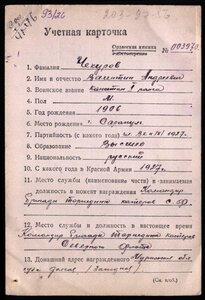 93/26
203-27-56
Учетная карточка
Орденская книжка
№ 003970
1. Фамилия Чекуров
2. Имя и отчество Валентин Андреевич
3. Воинское звание капитан I ранга
4. Пол М.
5. Год рождения 1906
6. Место рождения г. Сагопши
7. Партийность (с какого года) чл. ВКП(б) 1927г.
8. Образование Высшее
9. Национальность русский
10. С какого года в Красной Армии 1927г.
11. Место службы (наименование части) и занимаемая
должность в момент награждения Командир
бригады торпедных катеров СФ.
12. Место службы и должность в настоящее время
Командир бригады торпедных катеров
Северного флота
13. Домашний адрес награжденного Мурманск об
(См. н/об.)